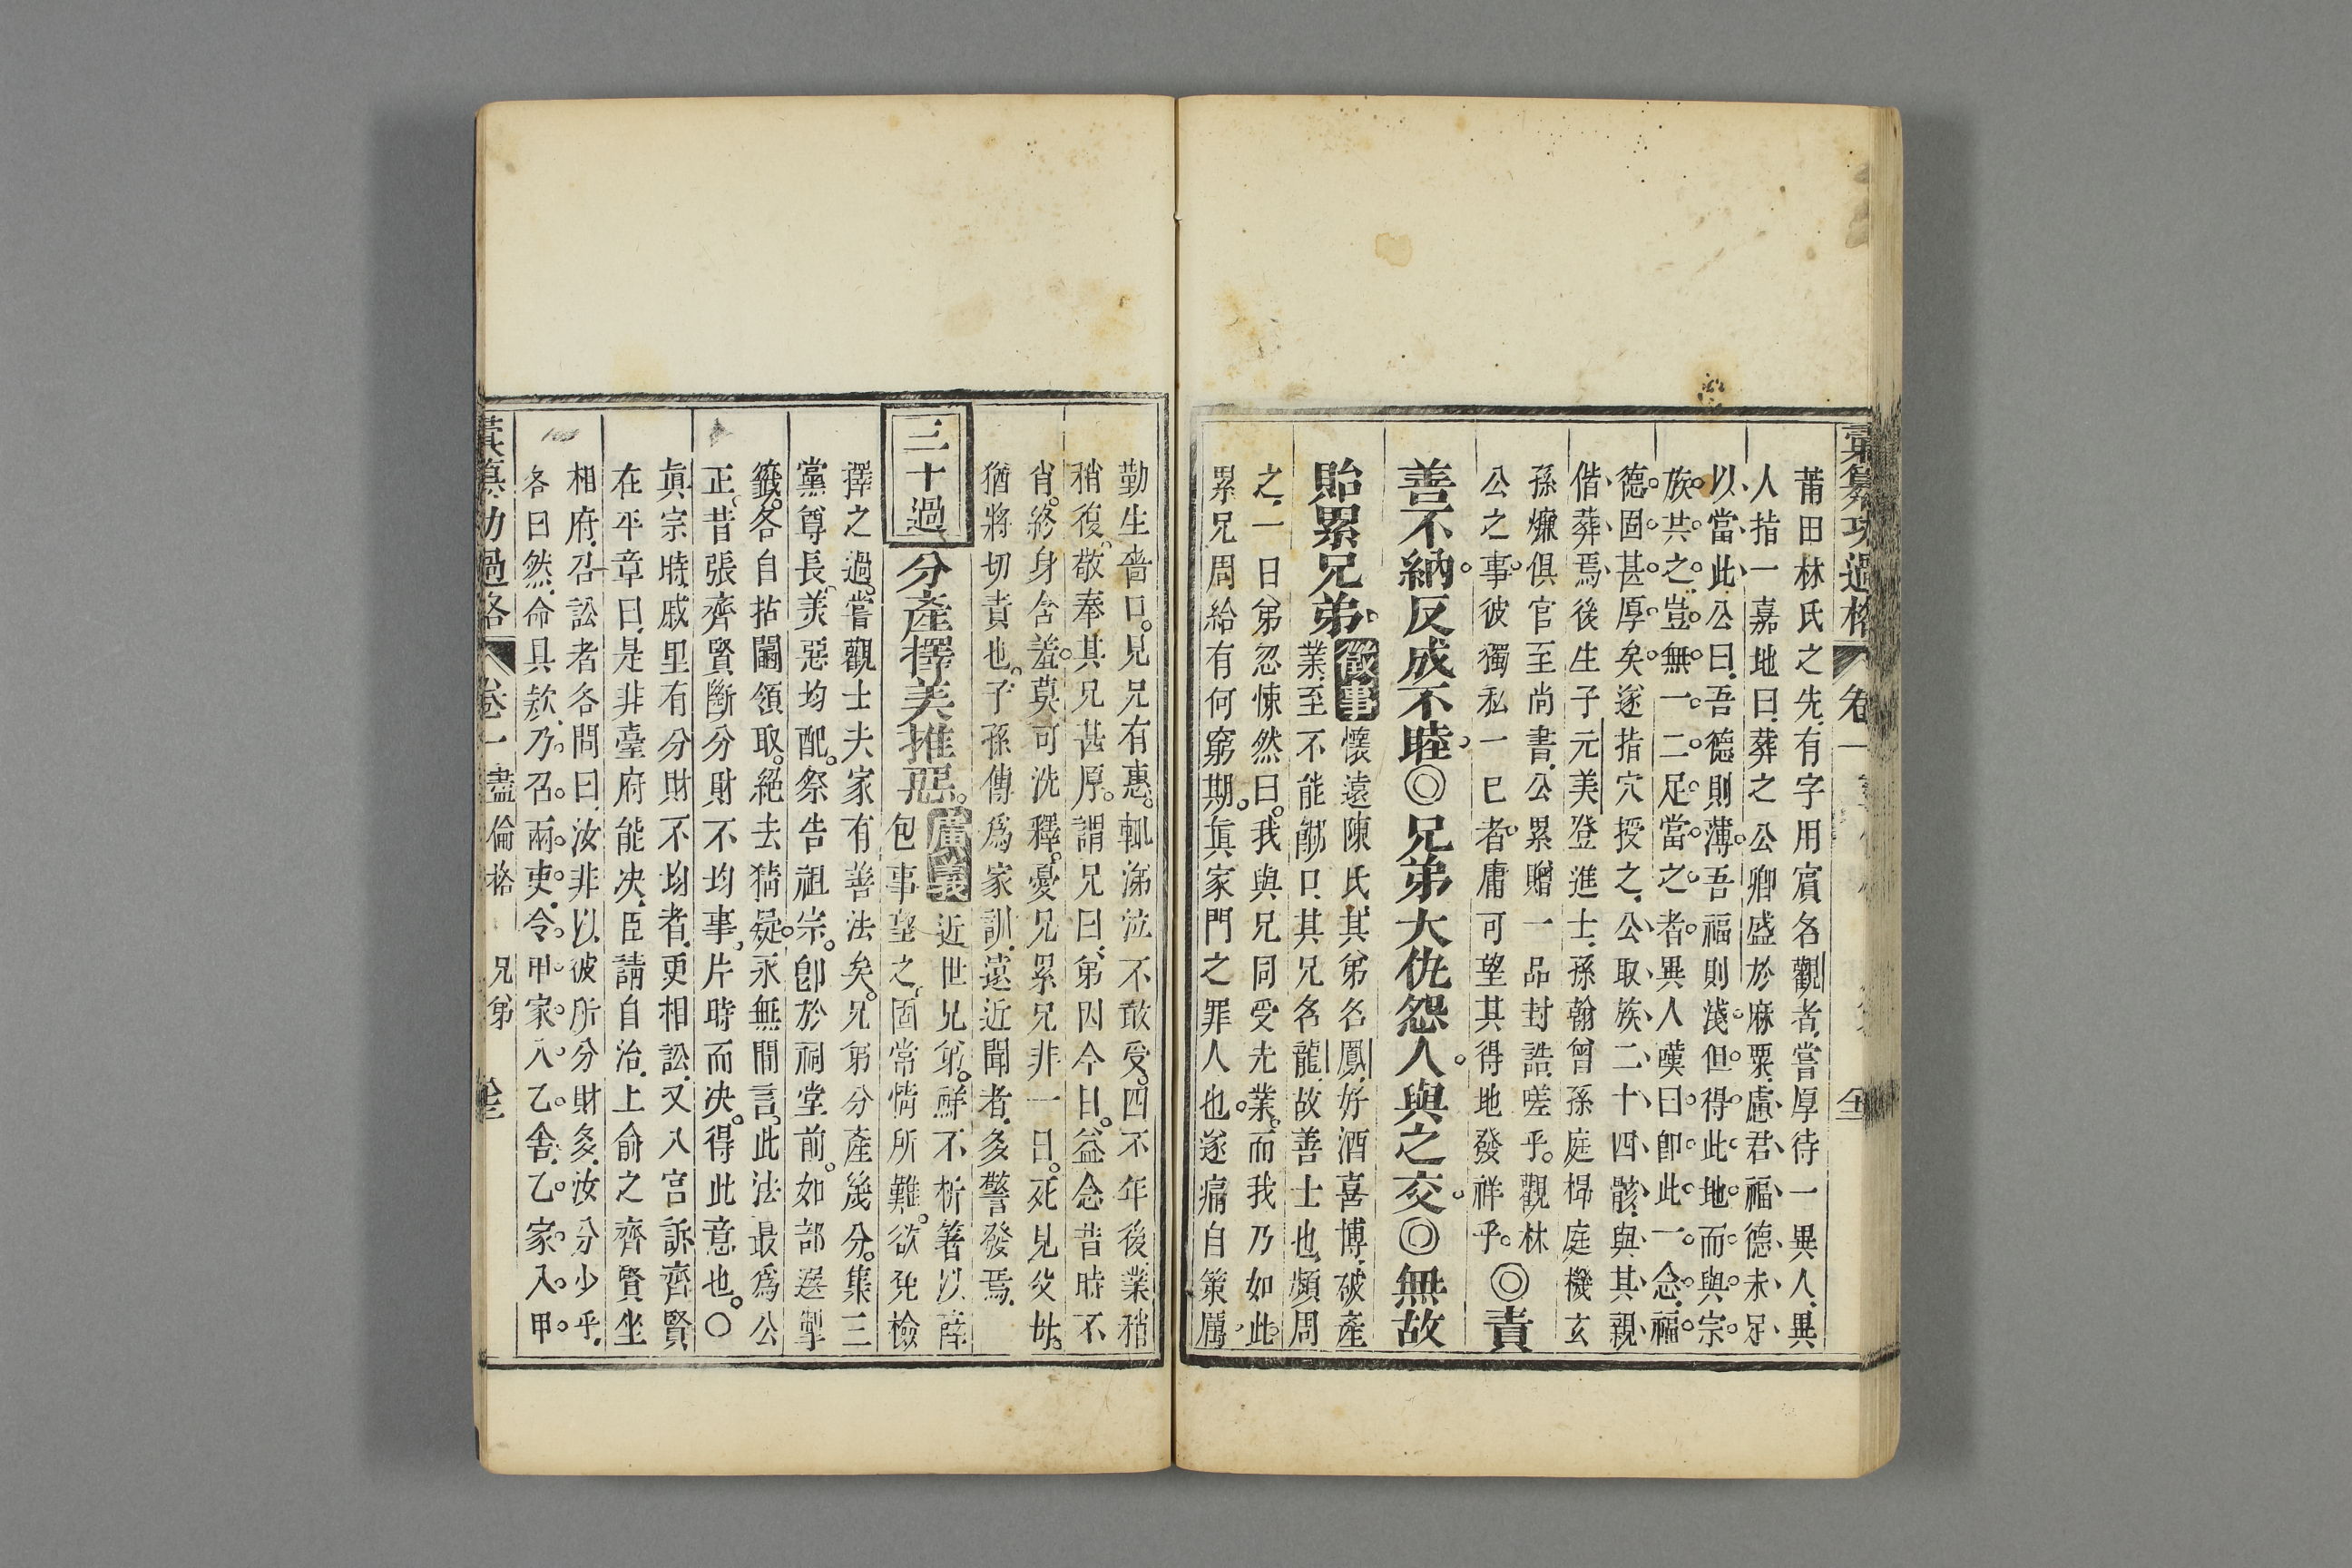 彙纂功過格 卷一
莆田林氏之先有字用賓名觀者嘗厚待一異人異
人指一嘉地曰葬之公卿盛於麻粟慮君福德未足
以當此公曰吾德則薄吾福則淺但得此地而與宗
族共之豈無一二足當之者異人嘆曰卽此一念福
德固甚厚矣遂指穴授之公取族二十四骸與其親
偕葬焉後生子元美登進士孫翰曾孫庭㭿庭機玄
孫燫俱官至尚書公累贈一品封誥嗟乎觀林
公之事彼獨私一己者庸可望其得地發祥乎◎責
善不納反成不睦◎兄弟大仇怨人與之交◎無故
貽累兄弟徵事懷遠陳氏其弟名鳳好酒喜博破產
業至不能餬口其兄名龍故善士也頻周
之一日弟忽悚然曰我與兄同受先業而我乃如此
累兄周給有何窮期眞家門之罪人也遂痛自策厲
勤生嗇口見兄有惠輒涕泣不敢受四不年後業稍
稍復敬奉其兄甚厚謂兄曰弟因今日益念昔時不
肖終身含羞莫可洗釋憂兄累兄非一日死見父母
猶將切責也子孫傳爲家訓遠近聞者多警發焉
三十過 分產擇美推惡廣義近世兄弟鮮不析箸以薛
包事望之固常情所難欲免檢
擇之過嘗觀士夫家有善法矣兄弟分產幾分集三
黨尊長美惡均配祭告祖宗卽於祠堂前如部選掣
籤各自拈鬮領取絕去猜疑永無閒言此法最爲公
正昔張齊賢斷分財不均事片時而决得此意也○
眞宗時戚里有分財不均者更相訟又入宮訴齊賢
在平章曰是非臺府能决臣請自治上俞之齊賢坐
相府召訟者各問曰汝非以彼所分財多汝分少乎
各曰然命具欵乃召兩吏令甲家入乙舍乙家入甲
彙纂功過格 卷一 盡倫格 兄弟